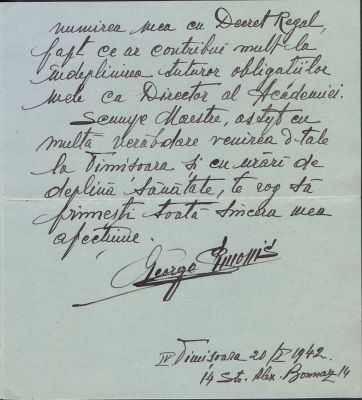 numirea mea cu Decret Regal,
fapt ce ar contribui mult la
indeplinirea tuturor obligatiilor
mele ca Director al Academiei.
Scumpe Maestre, astept cu
multă verăbdare venirea d-tale
la Timisoara și cu urări de
deplină sănătate, te rog să
primești toată sincera mea
afecțiune.
George Simonis
IV Timisoara 20/X 1942.
14 Str. Alex. Bonnaz 14